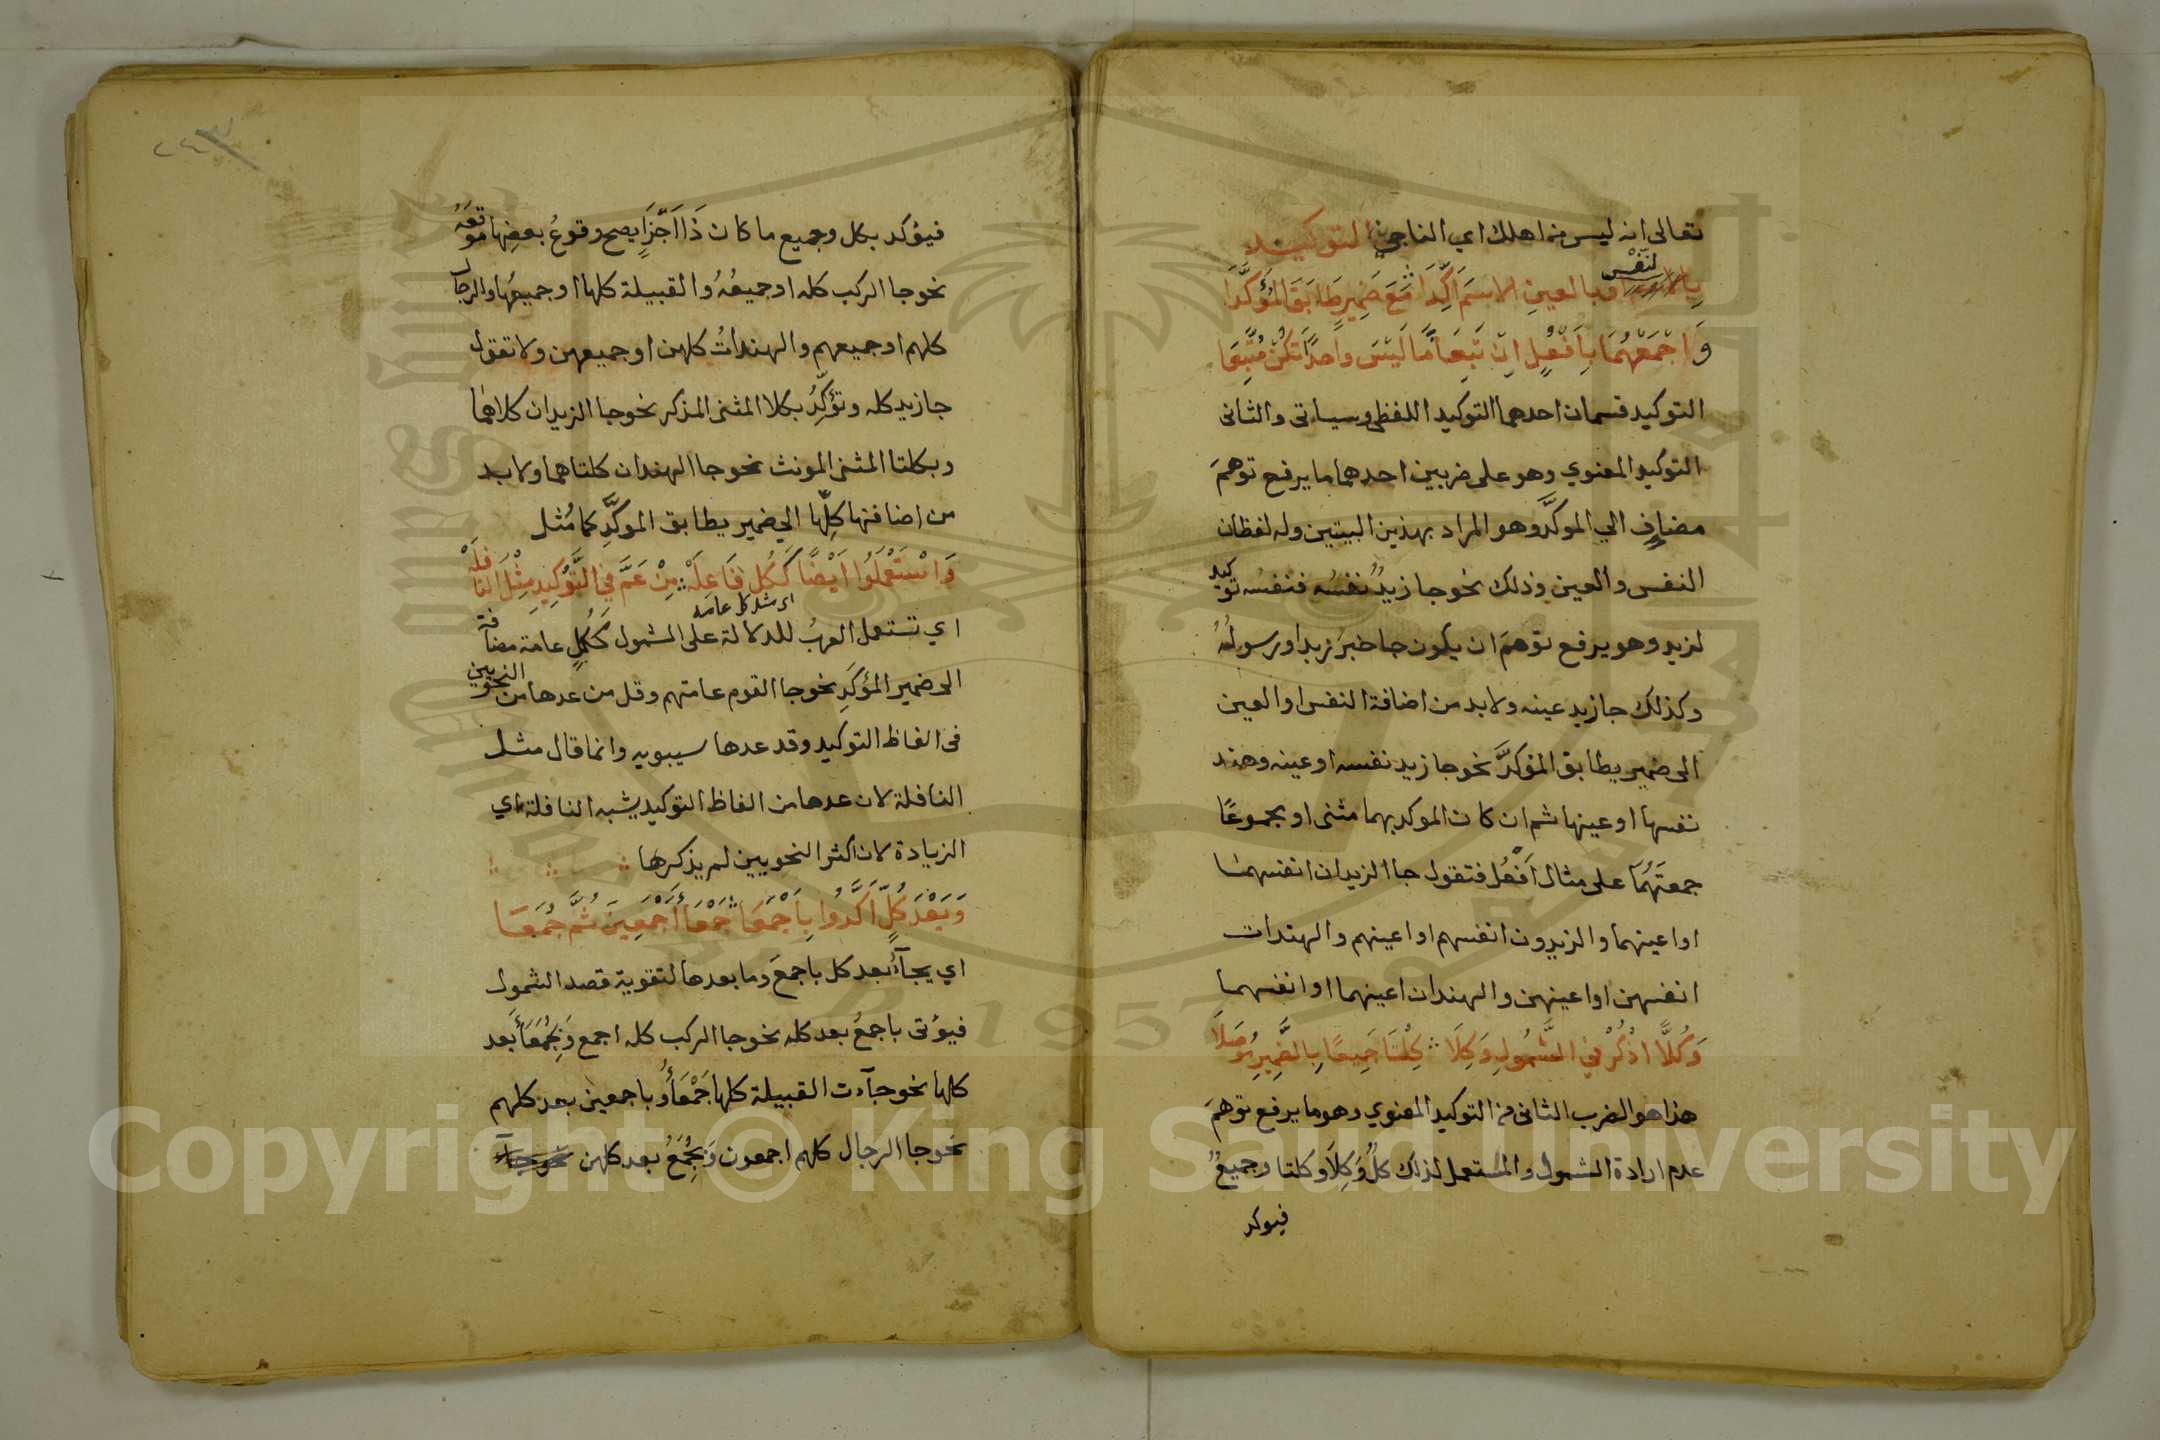 تعالى انه ليس من اهلك اي الناجين التوكيد
بالنفس وبالعين الاسم اكدا مع ضمير طابق المؤكدا
واجمعهما بافعل ان تبعا ما ليس واحدا تكن متبعا
التوكيد قسمان احدهما التوكيد اللفظي وسياتى والثانى
التوكيد المعنوي وهو على ضربين احدهما ما يرفع توهم
مضاف الي الموكد وهو المراد بهذين البيتين وله لفظان
النفس والعين وذلك نحو جا زيد نفسه فنفسه توكيد
لزيد وهو يرفع توهم ان يكون جا خبر زيد او رسوله
وكذلك جا زيد عينه ولا بد من اضافة النفس او العين
الى ضمير يطابق المؤكد نحو جا زيد نفسه او عينه وهند
نفسها او عينها ثم ان كان الموكد بهما مثنى او مجموعا
جمعتهما على مثال افعل فتقول جا الزيدان انفسهما
او اعينهما والزيدون انفسهم او اعينهم والهندات
انفسهن او اعينهن والهندان اعينهما او انفسهما
وكلا اذكر في الشمول وكلا كلتا جميعا بالضمير موصلا
هذا هو الضرب الثانى من التوكيد المعنوي وهو ما يرفع توهم
عدم ارادة الشمول والمستعمل لذلك كل وكلا وكلتا وجميع
فيوكد
٢٤٣
فيؤكد بكل وجميع ما كان ذا اجزا يصح وقوع بعضها موقعه
نحو جا الركب كله او جميعه والقبيلة كلها او جميعها والرجال
كلهم او جميعهم والهندات كلهن او جميعهن ولا تقول
جا زيد كله وتؤكد بكلا المثنى المذكر نحو جا الزيدان كلاهما
وبكلتا المثنى المونث نحو جا الهندان كلتاهما ولا بد
من اضافتها كلها الي ضمير يطابق الموكد كما مثل
واستعملوا ايضا ككل فاعله من عم في التوكيد مثل النافله
اي مثل كل عامه
اي تستعمل العرب للدلالة على الشمول ككل عامة مضافة
الى ضمير المؤكد نحو جا القوم عامتهم وقل من عدها من النحويين
فى الفاظ التوكيد وقد عدها سيبويه وانما قال مثل
النافلة لان عدها من الفاظ التوكيد يشبه النافلة اي
الزيادة لان اكثر النحويين لم يذكرها
وبعد كل اكدوا باجمعا جمعا اجمعين ثم جمعا
اي يجآء بعد كل باجمع وما بعدها لتقوية قصد الشمول
فيؤتى باجمع بعد كله نحو جا الركب كله اجمع وبجمعا بعد
كلها نحو جآءت القبيلة كلها جمعأ وباجمعين بعد كلهم
نحو جا الرجال كلهم اجمعون وبجمع بعد كلهن نحو جآء
Copyright © King Saud University
1957